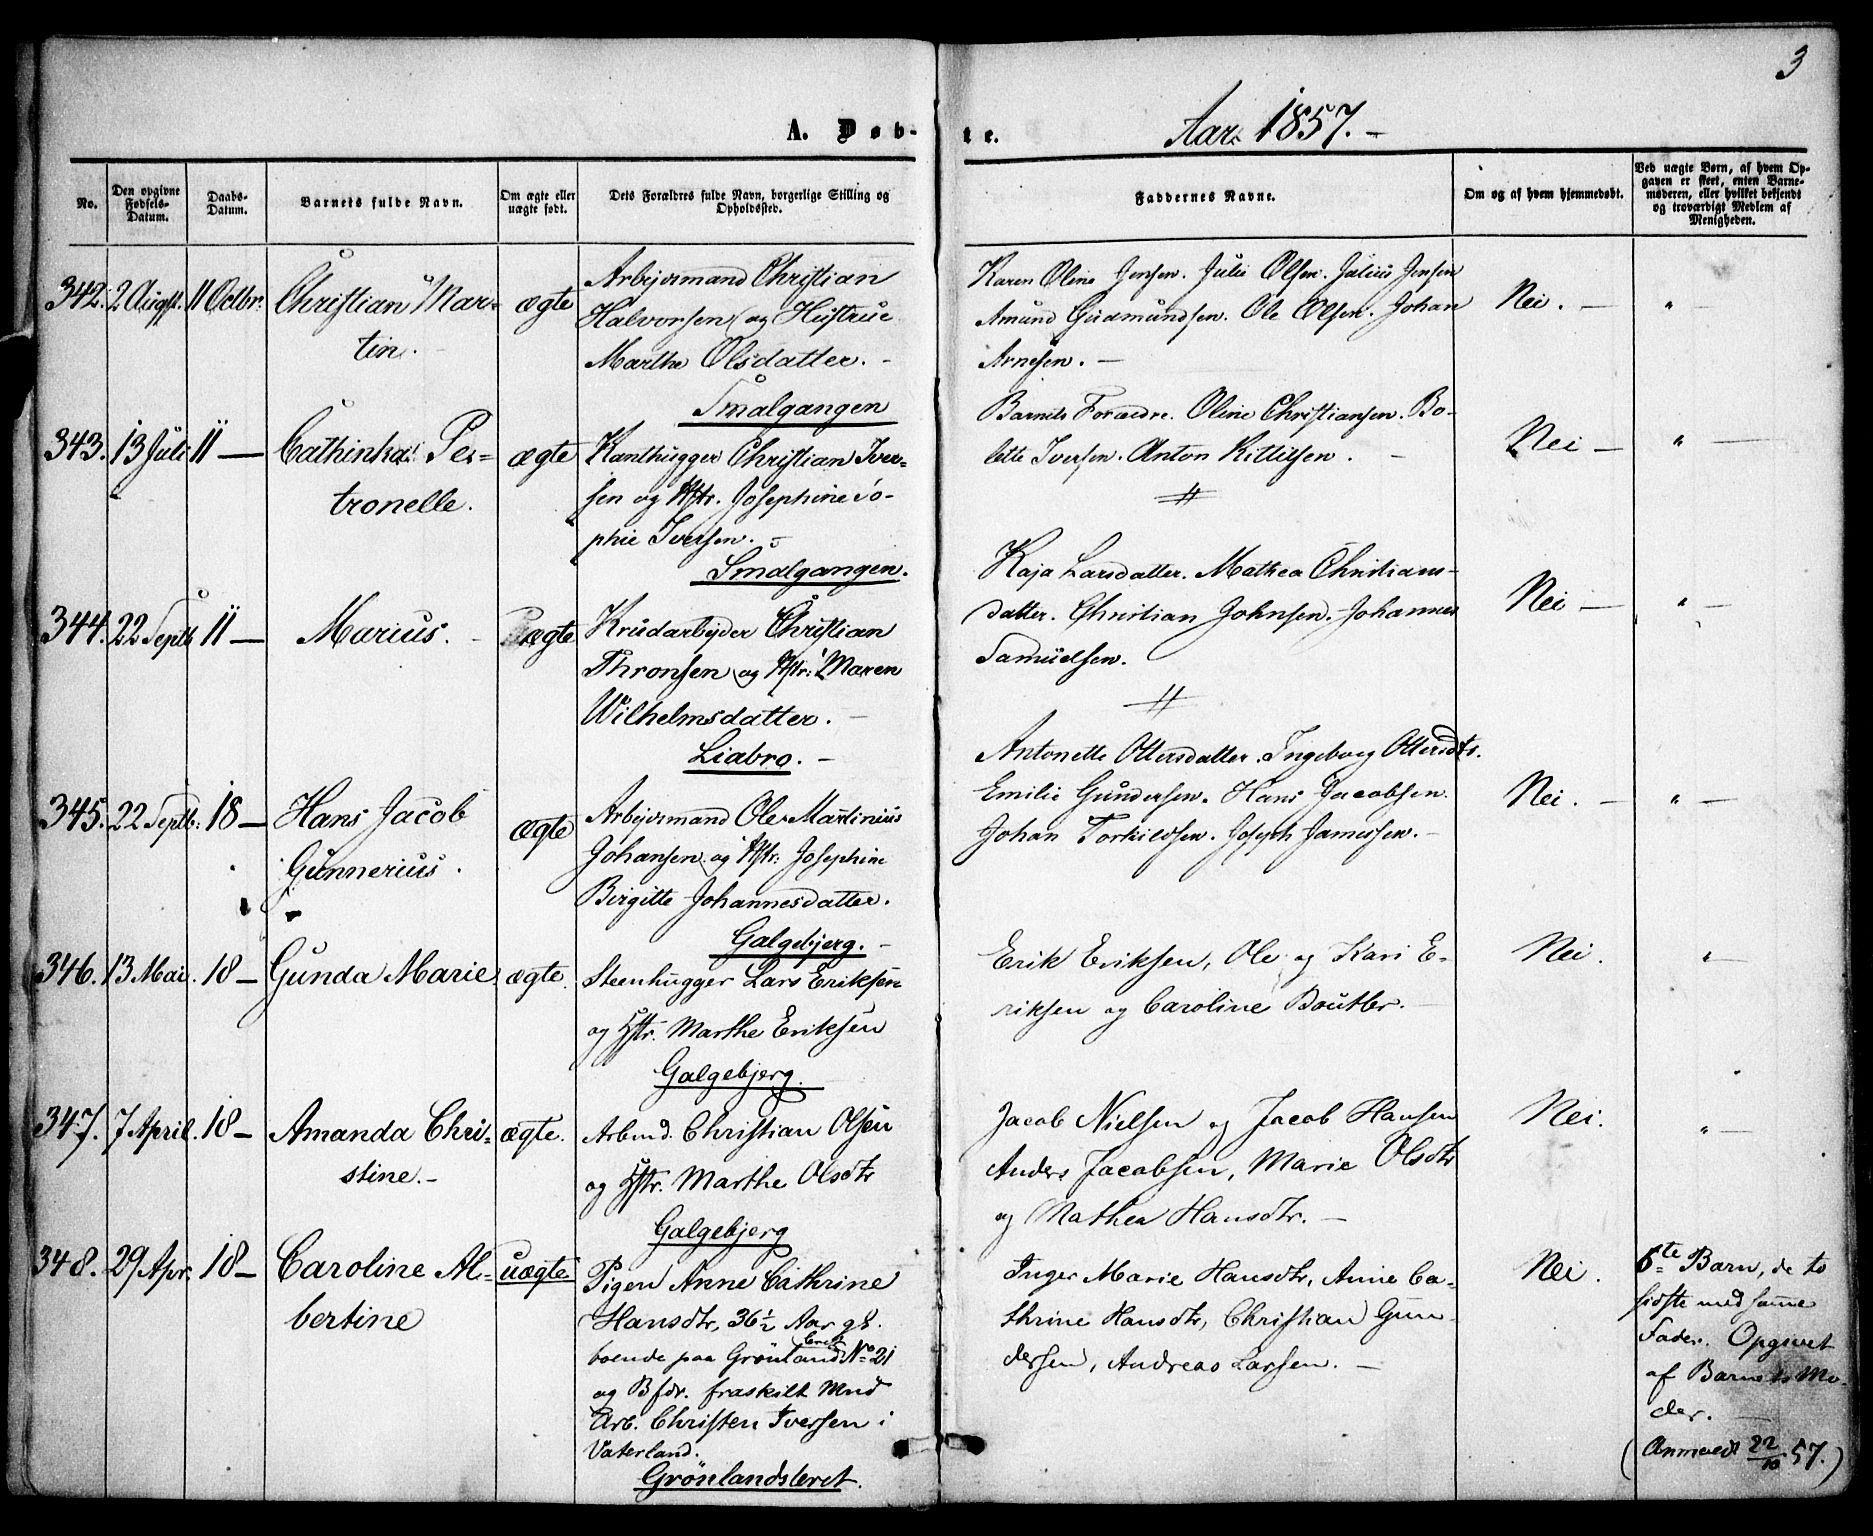 3
A. Døb-
te.
Aar 1857. -
No.
Den opgivne Fødsels-Datum.
Daabs-Datum.
Barnets fulde Navn.
Om ægte eller uægte født.
Dets Forældres fulde Navn, borgerlige Stilling og Opholdssted.
Faddernes Navne.
Om og af hvem hjemmedøbt.
Ved uægte Børn, af hvem Opgaven er skeet, enten Barnemoderen, eller hvilket bekjendt og troværdigt Medlem af Menigheden.
342. 2 Augst. 11 Octbr. Christian Mar-
tin.
ægte
Arbejdsmand Christian
Halvorsen og Hustrue
Marthe Olsdatter. -
Smalgangen
Karen Oline Jensen. Julie Olsen. Julius Jensen
Amund Gudmundsen. Ole Olsen. Johan
Arnesen. -
Nei. - " -
343. 13 Juli 11 - Cathinka Pe-
tronelle.
ægte
Kanthugger Christian Iver-
sen og Hstr. Josephine So-
phie Iversen. -
Smalgangen.
Barnets Forædre. Oline Christiansen. Bo-
lette Iversen. Anton Kittilsen. -
Nei - " -
344. 22 Septb 11 - Marius. -
ægte
Krudarbejder Christian
Thronsen og Hstr: Maren
Wilhelmsdatter. -
Liabro. -
Kaja Larsdatter. Mathea Christians-
datter. Christian Johnsen. Johannes
Samuelsen.
Nei - " -
345. 22 Septb: 18 - Hans Jacob
Gunnerius.
ægte
Arbejdsmand Ole Martinius
Johansen og Hstr: Josephine
Birgitte Johannesdatter.
Galgebjerg. -
Antonette Ottersdatter. Ingeborg Ottersdtr.
Emilie Gundersen. Hans Jacobsen.
Johan Torkildsen. Joseph Jamessen. -
Nei. - " -
346. 13 Mai. 18 - Gunda Marie
ægte.
Steenhugger Lars Eriksen
og Hstr. Marthe Eriksen
Galgebjerg.
Erik Eriksen, Ole og Kari E-
riksen og Caroline
Nei. " -
347. 7 April. 18 - Amanda Chri-
stine. -
ægte.
Arbmd. Christian Olsen
og Hstr. Marthe Olsdtr
Galgebjerg
Jacob Nielsen og Jacob Hansen
Anders Jacobsen, Marie Olsdtr
og Mathea Hansdtr. -
Nei. " -
348. 29 Apr. 18 - Caroline Al-
bertine
uægte.
Pigen Anne Cathrine
Hansdtr, 36 1/2 Aar gl.
boende paa Grønland No 21
og Bfdr. fraskilt Mnd
Arb. Christen Iversen i
Vaterland.
Grönlandsleret.
Inger Marie Hansdtr, Anne Ca-
thrine Hansdtr, Christian Gun-
dersen, Andreas Larsen. -
Nei.
6te Barn, de to
sidste med samme
Fader. Opgivet
af Barnets Mo-
der. -
(Anmeldt 22/10 57.)